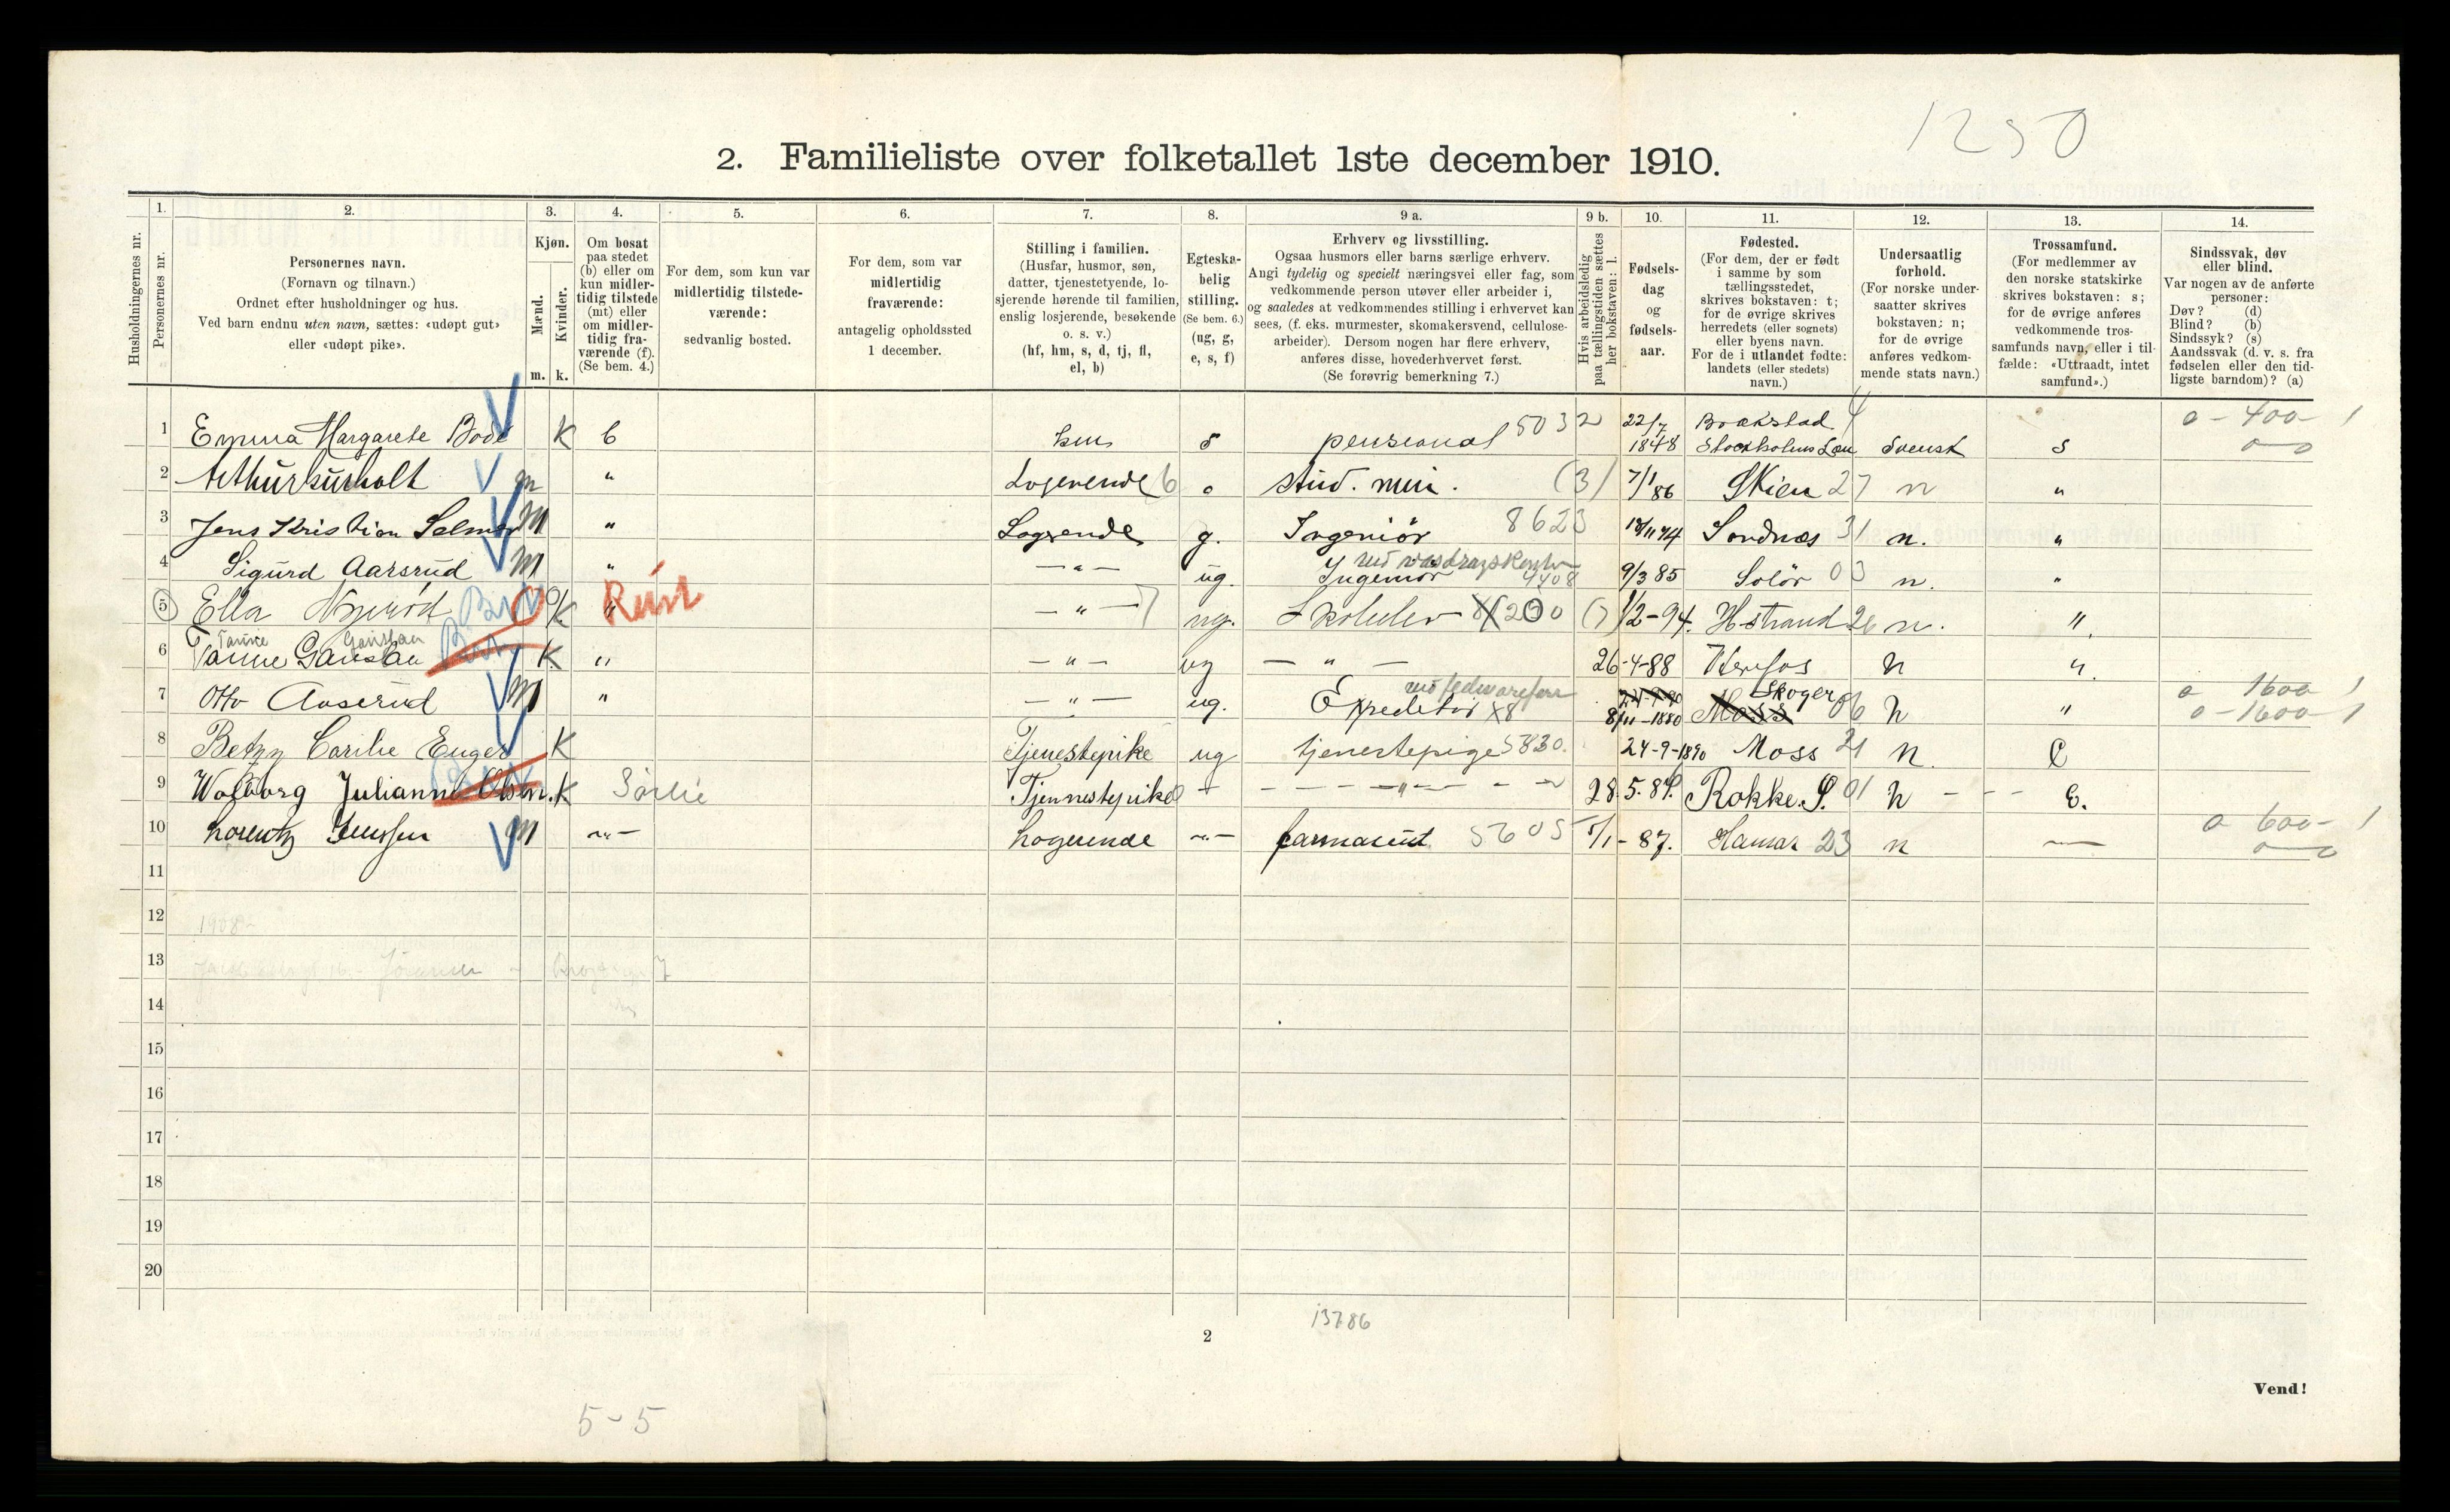 1250
2. Familieliste over folketallet 1ste december 1910.
Husholdningernes nr.
1. Personernes nr.
2. Personernes navn.
(Fornavn og tilnavn.)
Ordnet efter husholdninger og hus.
Ved barn endnu uten navn, sættes: «udøpt gut»
eller «udøpt pike».
3. Kjøn.
Mænd. Kvinder.
m. k.
4. Om bosat
paa stedet
(b) eller om
kun midler-
tidig tilstede
(mt) eller
om midler-
tidig fra-
værende (f).
(Se bem. 4.)
5. For dem, som kun var
midlertidig tilstede-
værende:
sedvanlig bosted.
6. For dem, som var
midlertidig
fraværende:
antagelig opholdssted
1 december.
7. Stilling i familien.
(Husfar, husmor, søn,
datter, tjenestetyende, lo-
sjerende hørende til familien,
enslig losjerende, besøkende
o. s. v.)
(hf, hm, s, d, tj, fl,
el, b)
8. Egteska-
belig
stilling.
(Se bem. 6.)
(ug, g,
e, s, f)
9 a. Erhverv og livsstilling.
Ogsaa husmors eller barns særlige erhverv.
Angi tydelig og specielt næringsvei eller fag, som
vedkommende person utøver eller arbeider i,
og saaledes at vedkommendes stilling i erhvervet kan
sees, (f. eks. murmester, skomakersvend, cellulose-
arbeider). Dersom nogen har flere erhverv,
anføres disse, hovederhvervet først.
(Se forøvrig bemerkning 7.)
9 b. Hvis arbeidsledig
paa tællingstiden sættes
her bokstaven: l.
10. Fødsels-
dag
og
fødsels-
aar.
11. Fødested.
(For dem, der er født
i samme by som
tællingsstedet,
skrives bokstaven: t;
for de øvrige skrives
herredets (eller sognets)
eller byens navn.
For de i utlandet fødte:
landets (eller stedets)
navn.)
12. Undersaatlig
forhold.
(For norske under-
saatter skrives
bokstaven: n;
for de øvrige
anføres vedkom-
mende stats navn.)
13. Trossamfund.
(For medlemmer av
den norske statskirke
skrives bokstaven: s;
for de øvrige anføres
vedkommende tros-
samfunds navn, eller i til-
fælde: «Uttraadt, intet
samfund».)
14. Sindssvak, døv
eller blind.
Var nogen av de anførte
personer:
Døv? (d)
Blind? (b)
Sindssyk? (s)
Aandssvak (d. v. s. fra
fødselen eller den tid-
ligste barndom)? (a)
1 Emma Margarete Bode K b hm pensionat 5032 22/7 1848 Stockholms Län Svensk s 0-400- 1
2 m " Losjerende 6 stud. min. (3) 7/1 86 Skien 27 n "
3 Jens Kristian Selmer M " Logerende g. Ingeniör 8623 Sandnæs 31 n. "
4 Sigurd Aarsrud M " - " - ug. Ingeniör 4408 9/3 85 Solör 03 n. "
5 Ella K " - " - 7 ug. 200 (7) 1/2-94. H-strand 26 n. "
6 K " - " - ug - " - 26-4-88 n "
7 Otto Aaserud M " - " - ug. Expeditör 8/11-1880 Moss Skoger 06 n " 0 1600 1
0-1600-1
8 Betzy Enger K Tjenestepike ug tjenestepige 5830. 24-9-1890 Moss 21 n.
9 Walborg Julianne Olsen. K Sörlie Tjennestepike - " - 28.5.89. Rokke. S. 01 n - E.
10 Lorentz Jenssen M - " - Logerende - " - farmaceut 5605 5/1-87. Hamar 23 n 0 600- 1
11
12 1908-
13
14
15
16
17
18
19
20
13786
2
Vend!
5-5